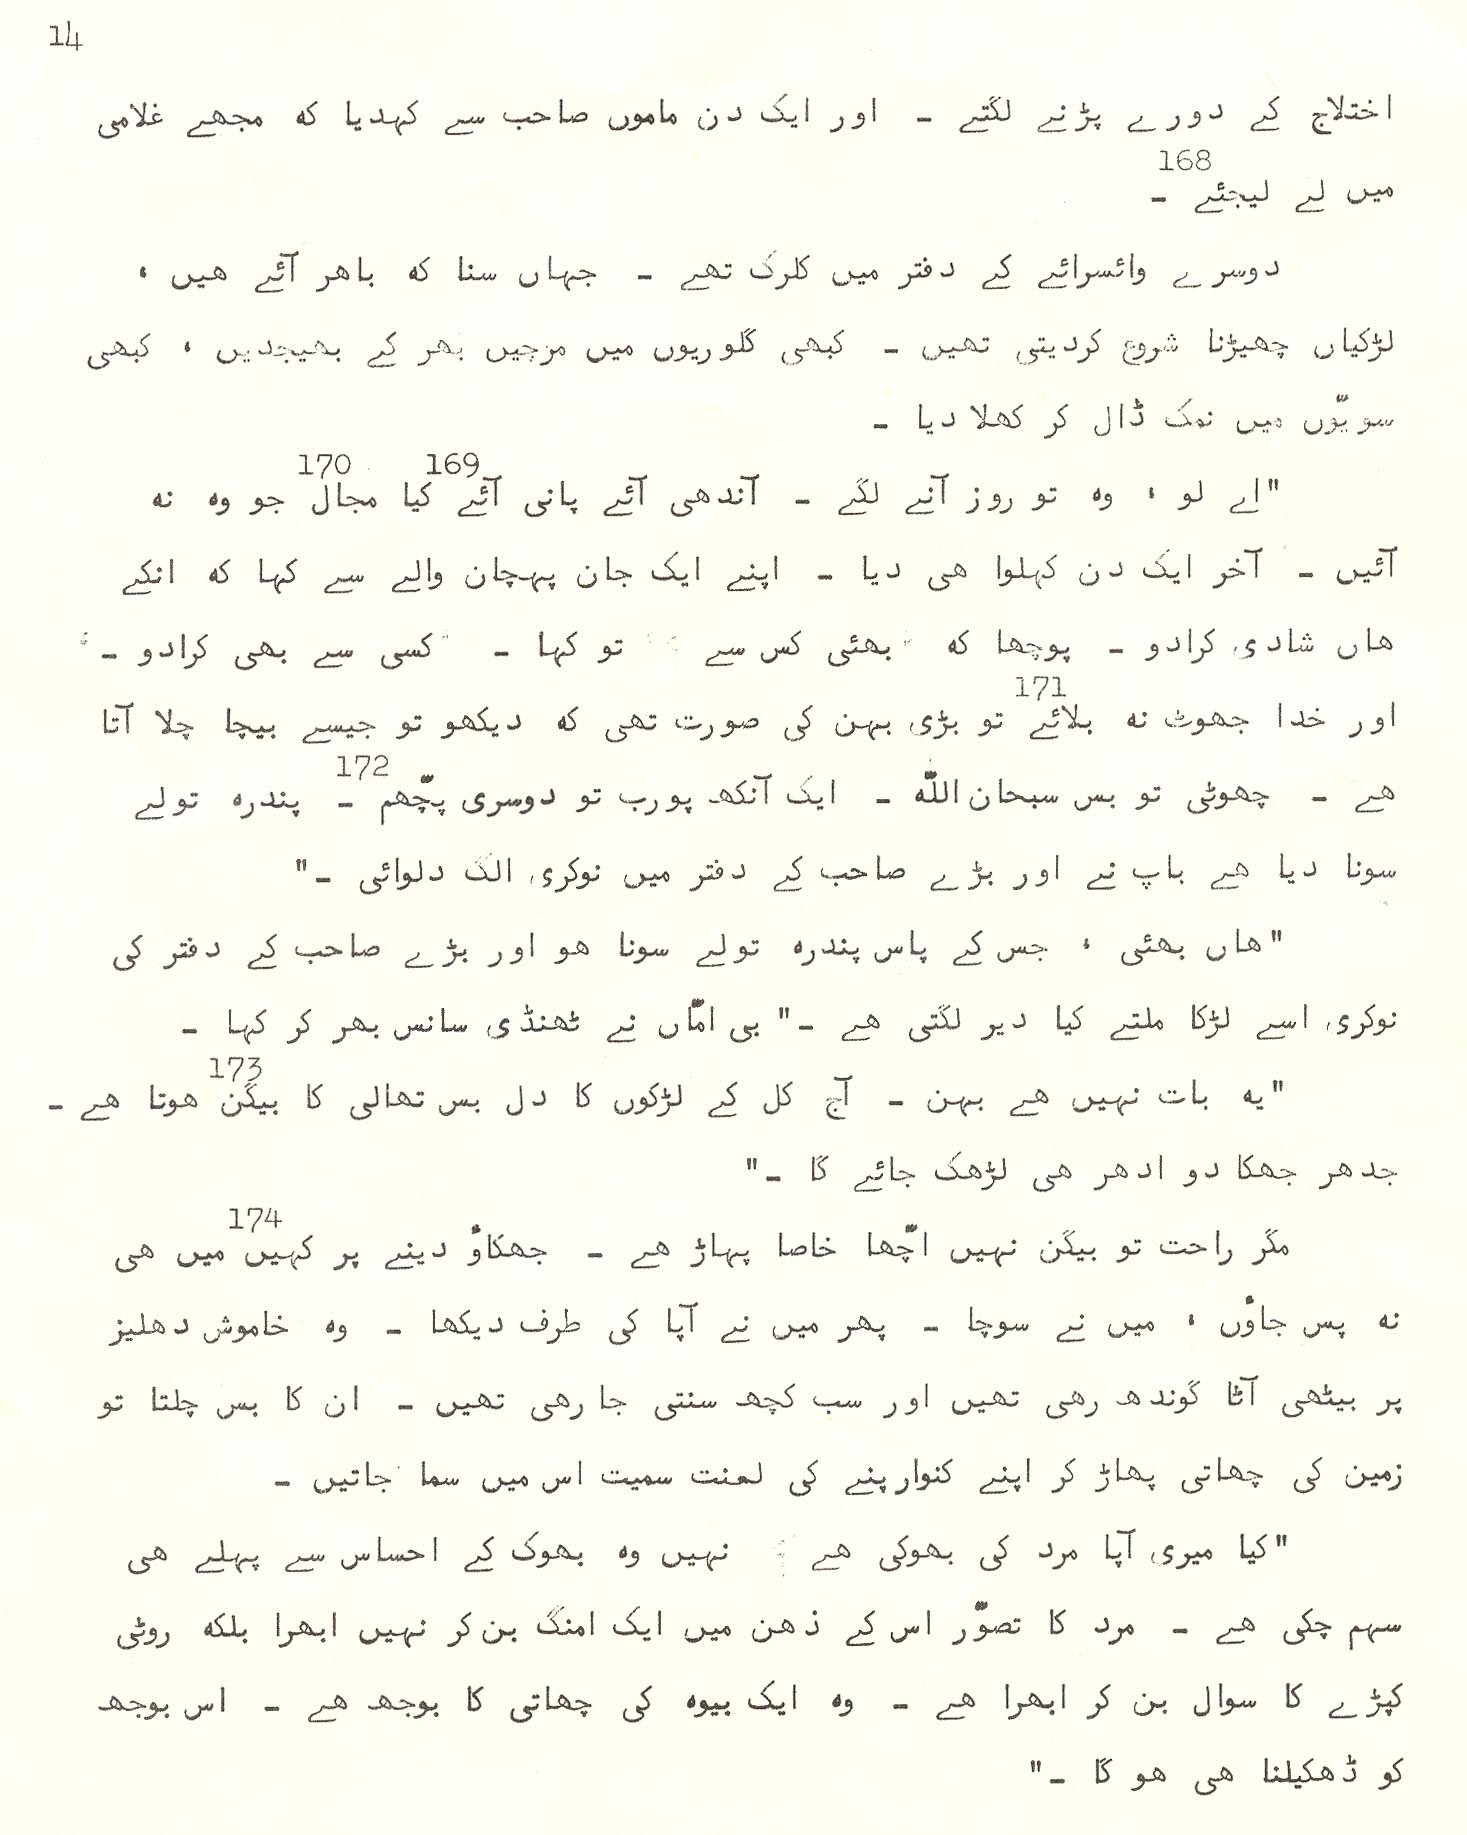 14
اختلاج کے دورے پڑنے لگتے ۔ اور ایک دن ماموں صاحب سے کہدیا که مجھے غلامی
168
میں لے لیجئے ۔
دوسرے وائسرائے کے دفتر میں کلرک تھے ۔ جہاں سنا که باھر آئے ھیں ،
لڑکیاں چھیڑنا شروع کردیتی تھیں ۔ کبھی گلوریوں میں مرچیں بھر کے بھیجدیں ، کبھی
سویّوں میں نمک ڈال کر کھلا دیا ۔
170 169
"اے لو ، وہ تو روز آنے لگے ۔ آندھی آئے پانی آئے کیا مجال جو وہ نه
آئیں ۔ آخر ایک دن کہلوا ھی دیا ۔ اپنے ایک جان پہچان والے سے کہا که انکے
ھاں شادی کرادو ۔ پوچھا که " بھئی کس سے تو کہا ۔ "کسی سے بھی کرادو ۔"
171
اور خدا جھوٹ نه بلائے تو بڑی بہن کی صورت تھی که دیکھو تو جیسے بیچا چلا آتا
172
ھے ۔ چھوٹی تو بس سبحان اللّه ۔ ایک آنکھ پورب تو دوسری پچّھم ۔ پندرہ تولے
سونا دیا ھے باپ نے اور بڑے صاحب کے دفتر میں نوکری الگ دلوائی ۔"
"ھاں بھئی ، جس کے پاس پندرہ تولے سونا ھو اور بڑے صاحب کے دفتر کی
نوکری اسے لڑکا ملتے کیا دیر لگتی ھے ۔" بی امّاں نے ٹھنڈی سانس بھر کر کہا ۔
173
"یه بات نہیں ھے بہن ۔ آج کل کے لڑکوں کا دل بس تھالی کا بیگن ھوتا ھے ۔
جدھر جھکا دو ادھر ھی لڑھک جائے گا ۔"
174
مگر راحت تو بیگن نہیں اچّھا خاصا پہاڑ ھے ۔ جھکاؤ دینے پر کہیں میں ھی
نه پس جاؤں ، میں نے سوچا ۔ پھر میں نے آپا کی طرف دیکھا ۔ وہ خاموش دھلیز
پر بیٹھی آٹا گوندھ رھی تھیں اور سب کچھ سنتی جا رھی تھیں ۔ ان کا بس چلتا تو
زمین کی چھاتی پھاڑ کر اپنے کنوارپنے کی لعنت سمیت اس میں سما جاتیں ۔
"کیا میری آپا مرد کی بھوکی ھے نہیں وہ بھوک کے احساس سے پہلے ھی
سہم چکی ھے ۔ مرد کا تصوّر اس کے ذھن میں ایک امنگ بن کر نہیں ابھرا بلکه روٹی
کپڑے کا سوال بن کر ابھرا ھے ۔ وہ ایک بیوہ کی چھاتی کا بوجھ ھے ۔ اس بوجھ
کو ڈھکیلنا ھی ھو گا ۔"